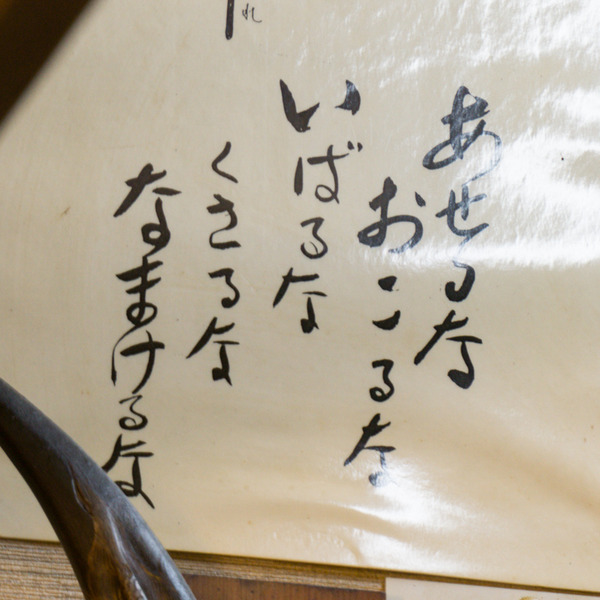 あせるな
おこるな
いばるな
くさるな
なまけるな
れ